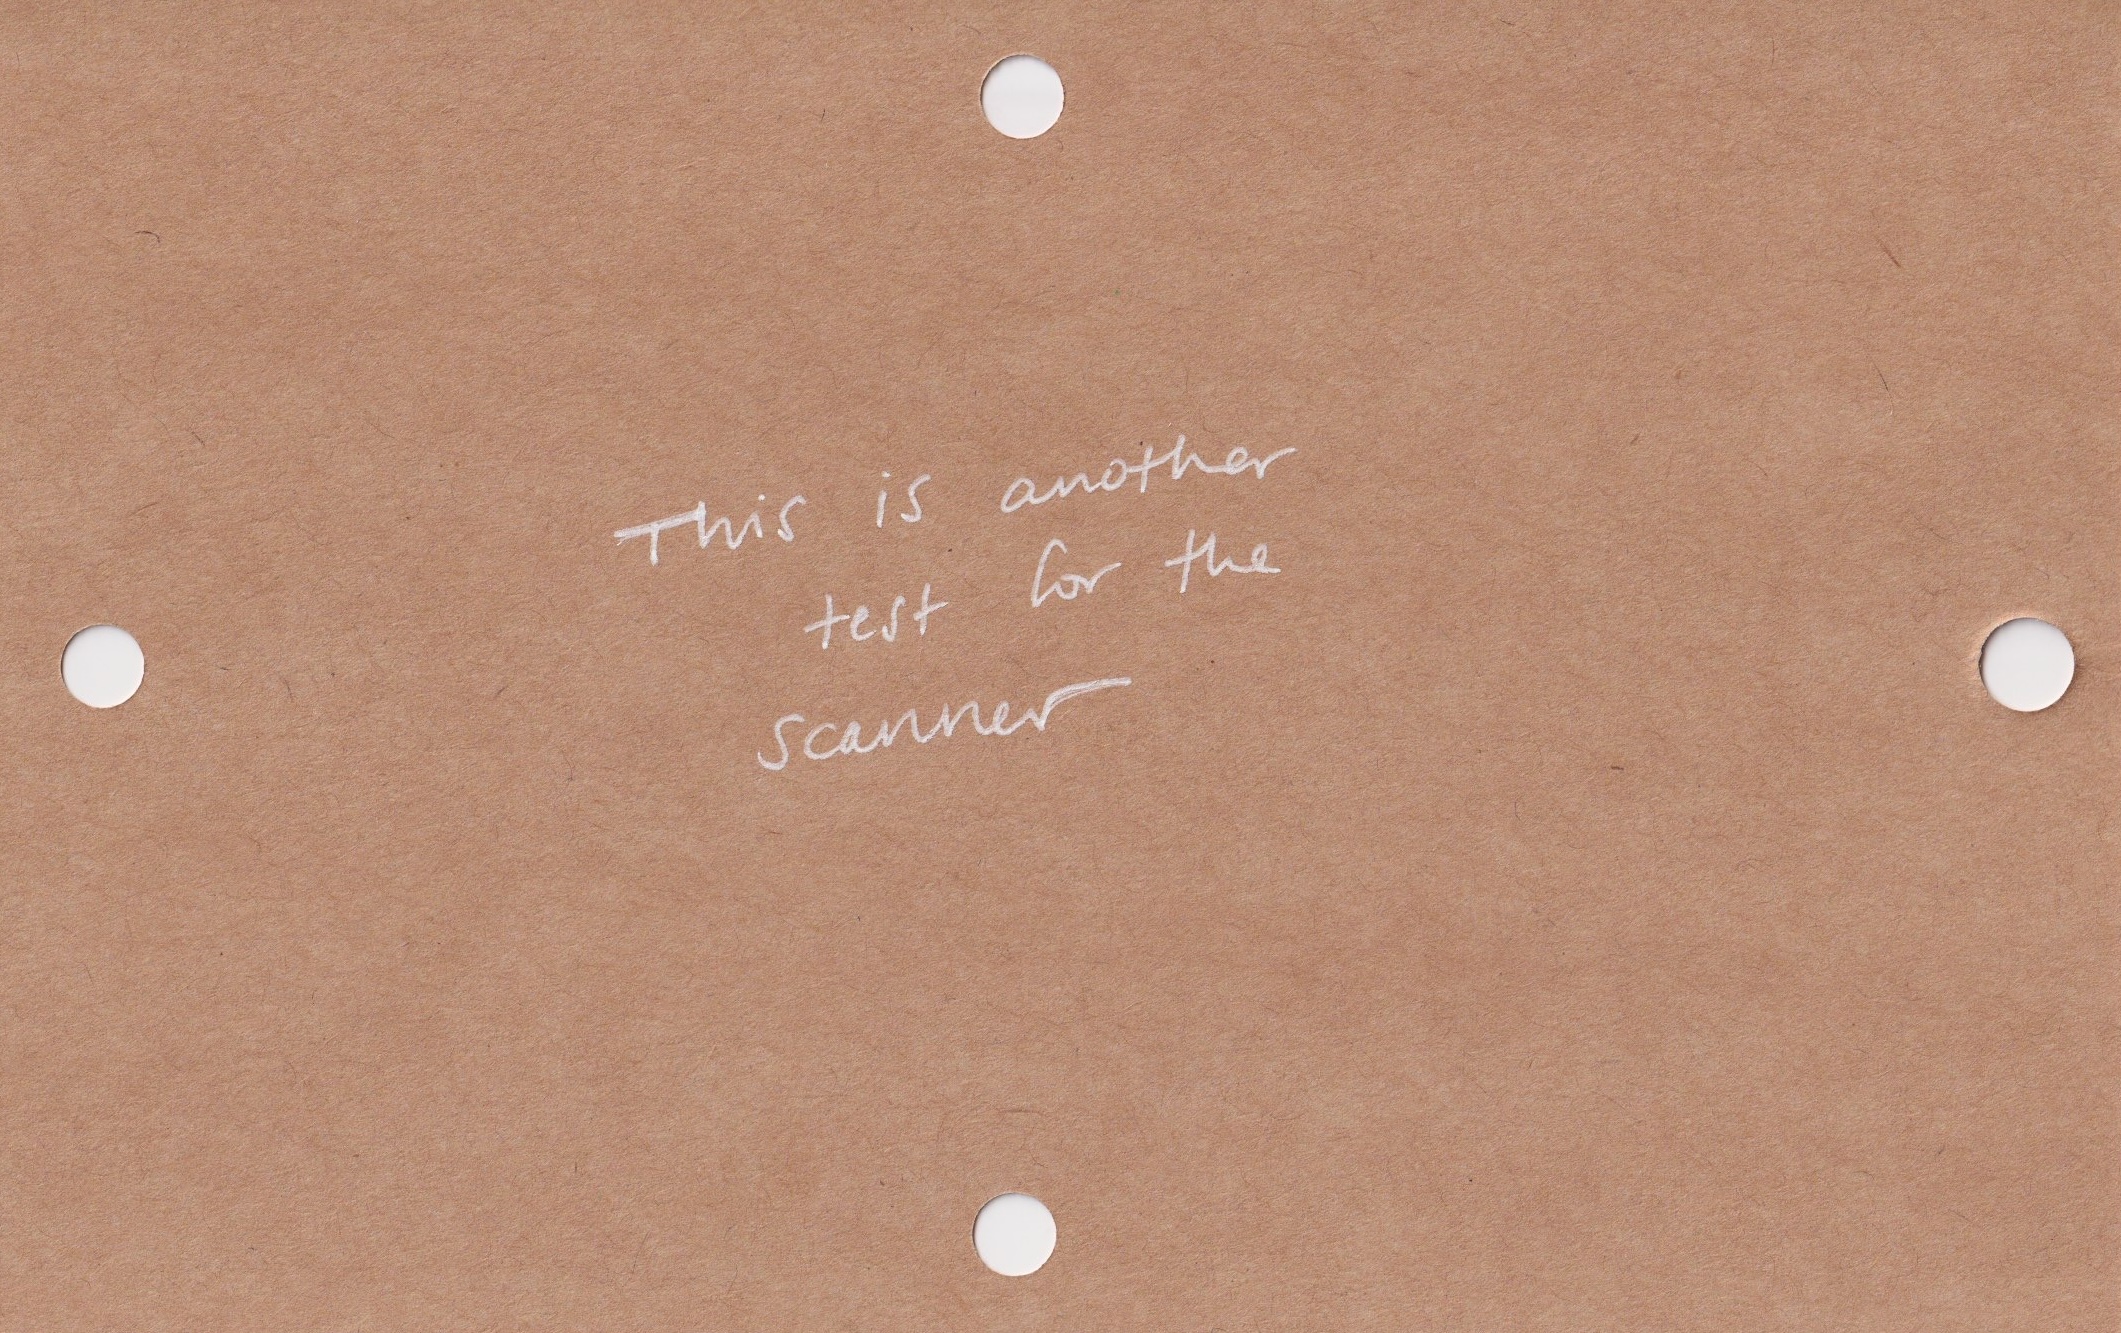 This is another
test for the
scanner